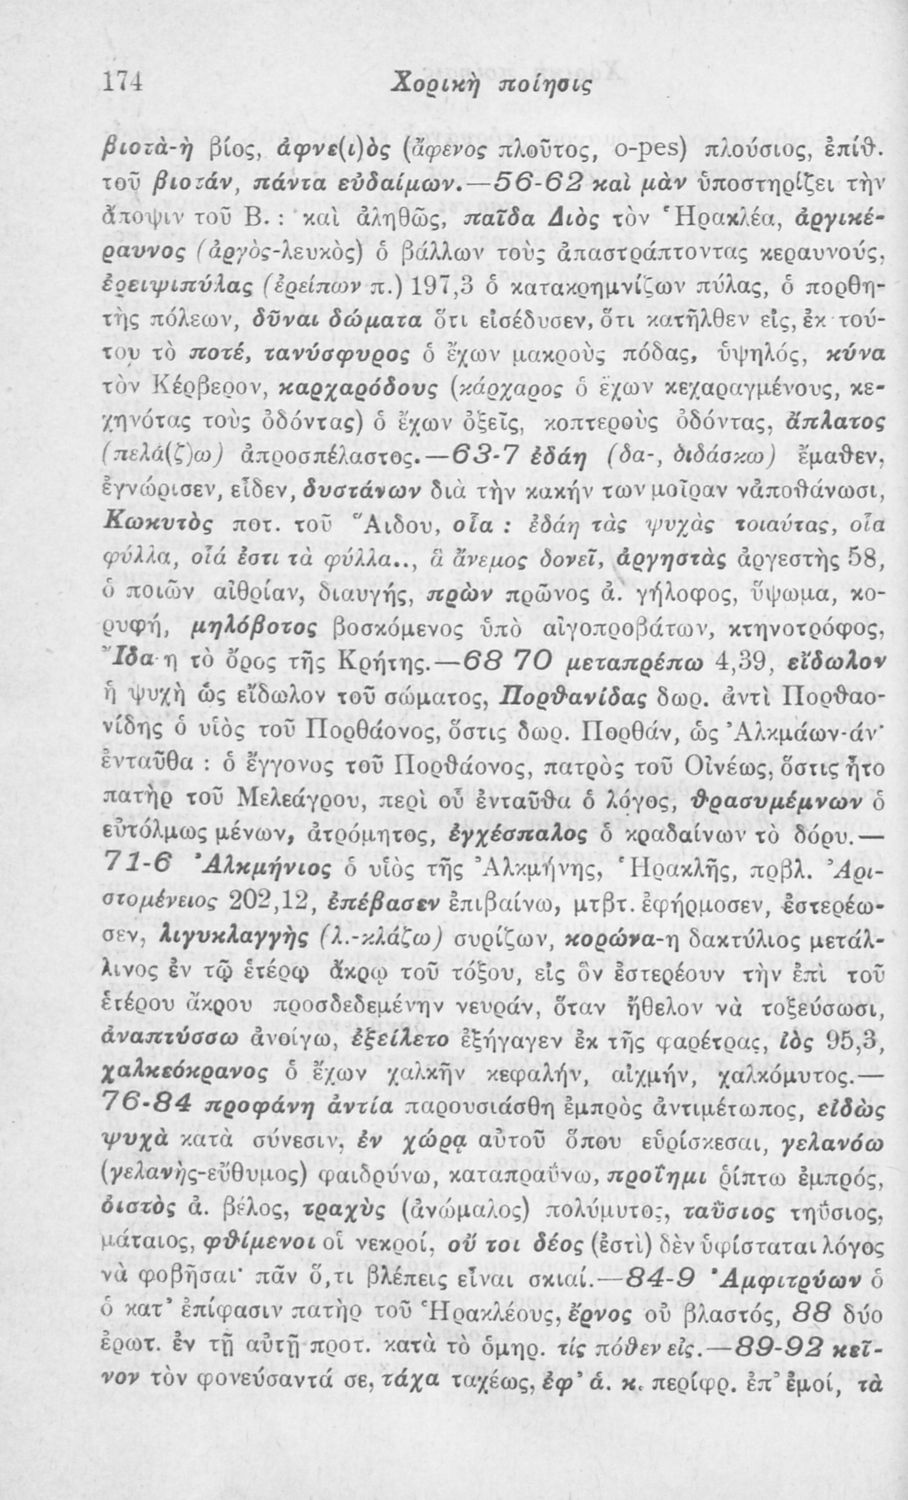 174 Χορικὴ ποίησις
βιοτὰ-ὴ βίος, ἀφνε(ι)ὸς (ἄφενος πλοῦτος, o-pes) πλούσιος, ἐπίθ.
τοῦ βιοτάν, πάντα εὐδαίμων.—56-62 καὶ μὰν ὑποστηρίζει τὴν
ἄποψιν τοῦ Β. : καὶ ἀληθῶς, παῖδα Διὸς τὸν Ἡρακλέα, ἀργικέ-
ραυνος (ἀργὸς-λευκὸς) ὁ βάλλων τοὺς ἀπαστράπτοντας κεραυνούς,
ἐρειψιπύλας (ἐρείπων π.) 197,3 ὁ κατακρημνίζων πύλας, ὁ πορθη-
τὴς πόλεων, δῦναι δώματα ὅτι εἰσέδυσεν, ὅτι κατῆλθεν εἰς, ἐκ τού-
του τὸ ποτέ, τανύσφυρος ὁ ἔχων μακροὺς πόδας, ὑψηλός, κύνα
τὸν Κέρβερον, καρχαρόδους (κάρχαρος ὁ ἔχων κεχαραγμένους, κε-
χηνότας τοὺς ὀδόντας) ὁ ἔχων ὀξεῖς, κοπτεροὺς ὀδόντας, ἄπλατος
(πελά(ζ)ω) ἀπροσπέλαστος.—63-7 ἐδάη (δα-, διδάσκω) ἔμαθεν,
ἐγνώρισεν, εἶδεν, δυστάνων διὰ τὴν κακήν των μοῖραν νἀποθάνωσι,
Κωκυτὸς ποτ. τοῦ Ἅιδου, οἷα : ἐδάη τὰς ψυχὰς τοιαύτας, οἷα
φύλλα, οἷά ἐστι τὰ φύλλα.., ἃ ἄνεμος δονεῖ, ἀργηστὰς ἀργεστὴς 58,
ὁ ποιῶν αἰθρίαν, διαυγής, πρὼν πρῶνος ἀ. γήλοφος, ὕψωμα, κο-
ρυφή, μηλόβοτος βοσκόμενος ὑπὸ αἰγοπροβάτων, κτηνοτρόφος,
Ἴδα-η τὸ ὄρος τῆς Κρήτης.—68 70 μεταπρέπω 4,39, εἴδωλον
ἡ ψυχὴ ὡς εἴδωλον τοῦ σώματος, Πορθανίδας δωρ. ἀντὶ Πορθαο-
νίδης ὁ υἱὸς τοῦ Πορθάονος, ὅστις δωρ. Πορθάν, ὡς Ἀλκμάων-άν·
ἐνταῦθα : ὁ ἔγγονος τοῦ Πορθάονος, πατρὸς τοῦ Οἰνέως, ὅστις ἦτο
πατὴρ τοῦ Μελεάγρου, περὶ οὗ ἐνταῦθα ὁ λόγος, θρασυμέμνων ὁ
εὐτόλμως μένων, ἀτρόμητος, ἐγχέσπαλος ὁ κραδαίνων τὸ δόρυ.—
71-6 Ἀλκμήνιος ὁ υἱὸς τῆς Ἀλκμήνης, Ἡρακλῆς, πρβλ. Ἀρι-
στομένειος 202,12, ἐπέβασεν ἐπιβαίνω, μτβτ. ἐφήρμοσεν, ἐστερέω-
σεν, λιγυκλαγγὴς (λ.-κλάζω) συρίζων, κορώνα-η δακτύλιος μετάλ-
λινος ἐν τῷ ἑτέρῳ ἄκρῳ τοῦ τόξου, εἰς ὃν ἐστερέουν τὴν ἐπὶ τοῦ
ἑτέρου ἄκρου προσδεδεμένην νευράν, ὅταν ἤθελον νὰ τοξεύσωσι,
ἀναπτύσσω ἀνοίγω, ἐξείλετο ἐξήγαγεν ἐκ τῆς φαρέτρας, ἰὸς 95,3,
χαλκεόκρανος ὁ ἔχων χαλκῆν κεφαλήν, αἰχμήν, χαλκόμυτος.—
76-84 προφάνη ἀντία παρουσιάσθη ἐμπρὸς ἀντιμέτωπος, εἰδὼς
ψυχᾷ κατὰ σύνεσιν, ἐν χώρᾳ αὐτοῦ ὅπου εὑρίσκεσαι, γελανόω
(γελανὴς-εὔθυμος) φαιδρύνω, καταπραΰνω, προΐημι ῥίπτω ἐμπρός,
ὀιστὸς ἀ. βέλος, τραχὺς (ἀνώμαλος) πολύμυτος, ταΰσιος τηΰσιος,
μάταιος, φθίμενοι οἱ νεκροί, οὔ τοι δέος (ἐστὶ) δὲν ὑφίσταται λόγος
νὰ φοβῆσαι· πᾶν ὅ,τι βλέπεις εἶναι σκιαί.—84-9 Ἀμφιτρύων ὁ
ὁ κατ' ἐπίφασιν πατὴρ τοῦ Ἡρακλέους, ἔρνος οὐ βλαστός, 88 δύο
ἐρωτ. ἐν τῇ αὐτῇ προτ. κατὰ τὸ ὁμηρ. τίς πόθεν εἰς.—89-92 κεῖ-
νον τὸν φονεύσαντά σε, τάχα ταχέως, ἐφ' ἁ. κ. περίφρ. ἐπ' ἐμοί, τὰ